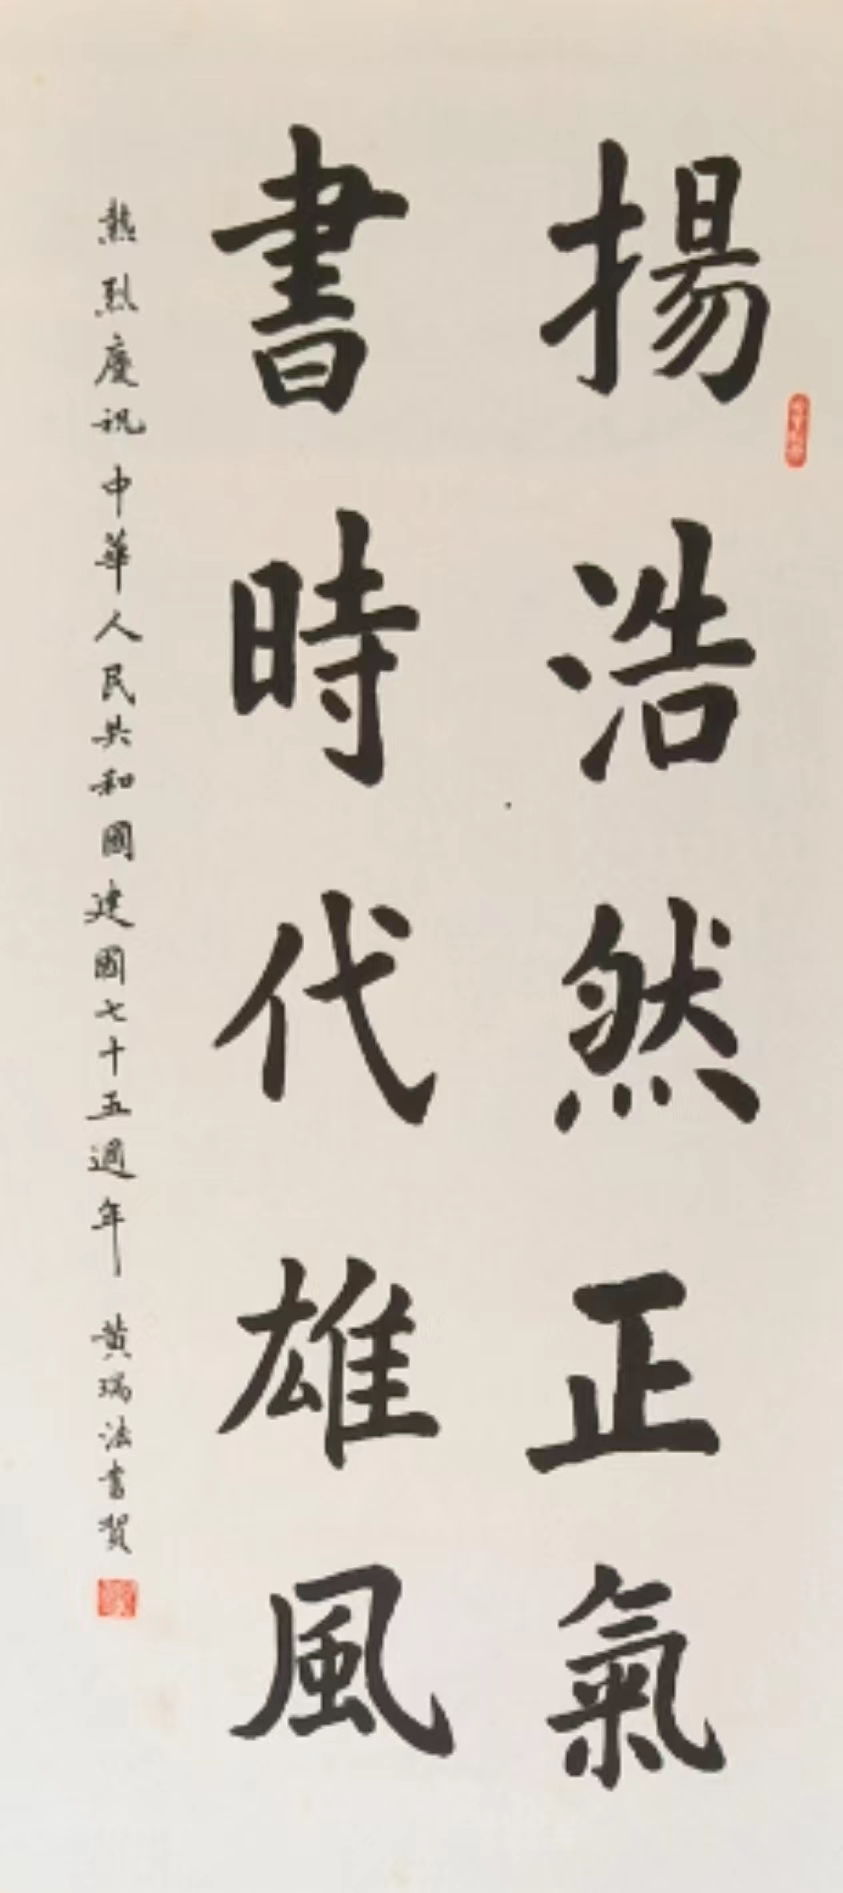 揚浩然正氣
書時代雄風
熱烈慶祝中華人民共和國建國七十五週年 黄瑞法書賀